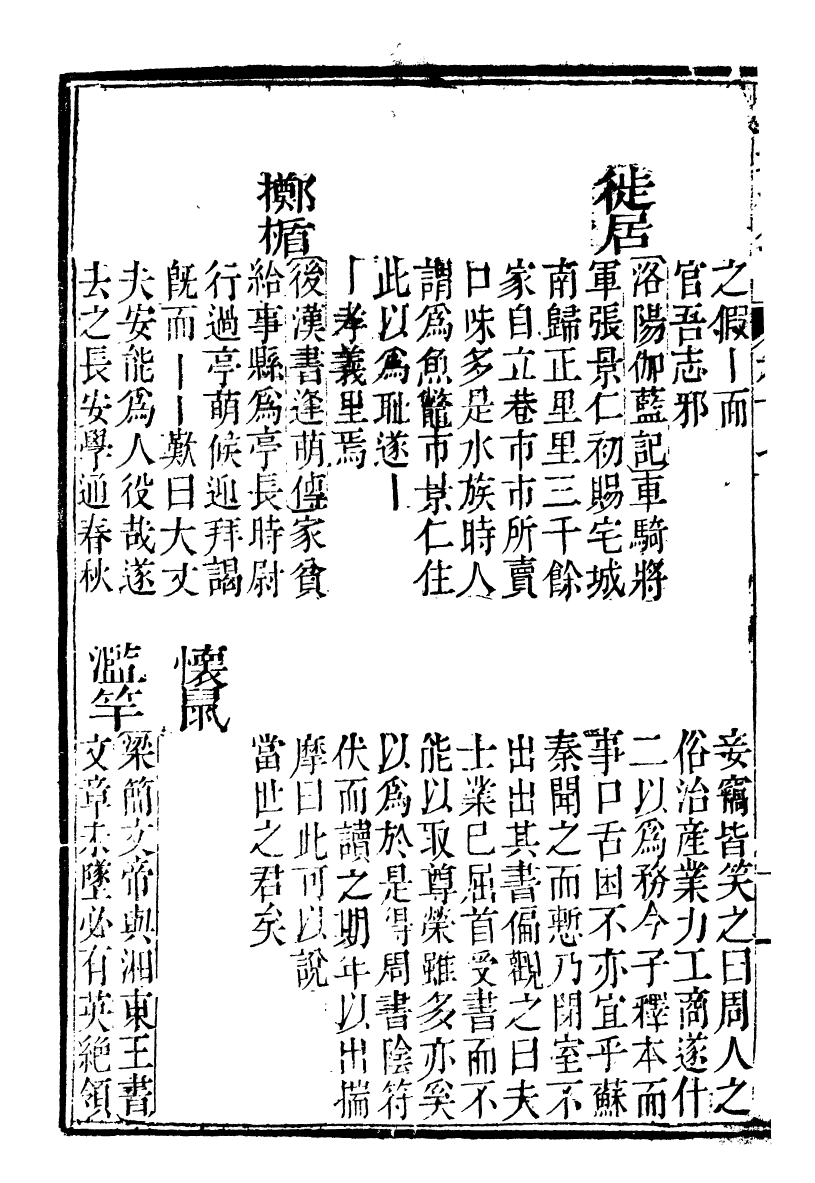 之假｜而
官吾志邪
徙居
洛陽伽藍記車騎將
軍張景仁初賜宅城
南歸正里里三千餘
家自立巷市市所賣
口味多是水族時人
謂爲魚鼈市景仁住
此以爲耻遂｜
｜孝義里焉
擲楯
後漢書逢萌傳家貧
給事縣爲亭長時尉
行過亭萌候迎拜謁
旣而｜｜歎曰大丈
夫安能爲人役哉遂
去之長安學通春秋
妾竊皆笑之曰周人之
俗治産業力工商遂什
二以爲務今子釋本而
事口舌困不亦宜乎蘇
秦聞之而慙乃閉室不
出出其書偏觀之曰夫
士業已屈首受書而不
能以取尊榮雖多亦奚
以爲於是得周書陰符
伏而讀之期年以出揣
摩曰此可以說
當世之君矣
懷鼠
濫竽
梁簡文帝與湘東王書
文章未墜必有英絶領